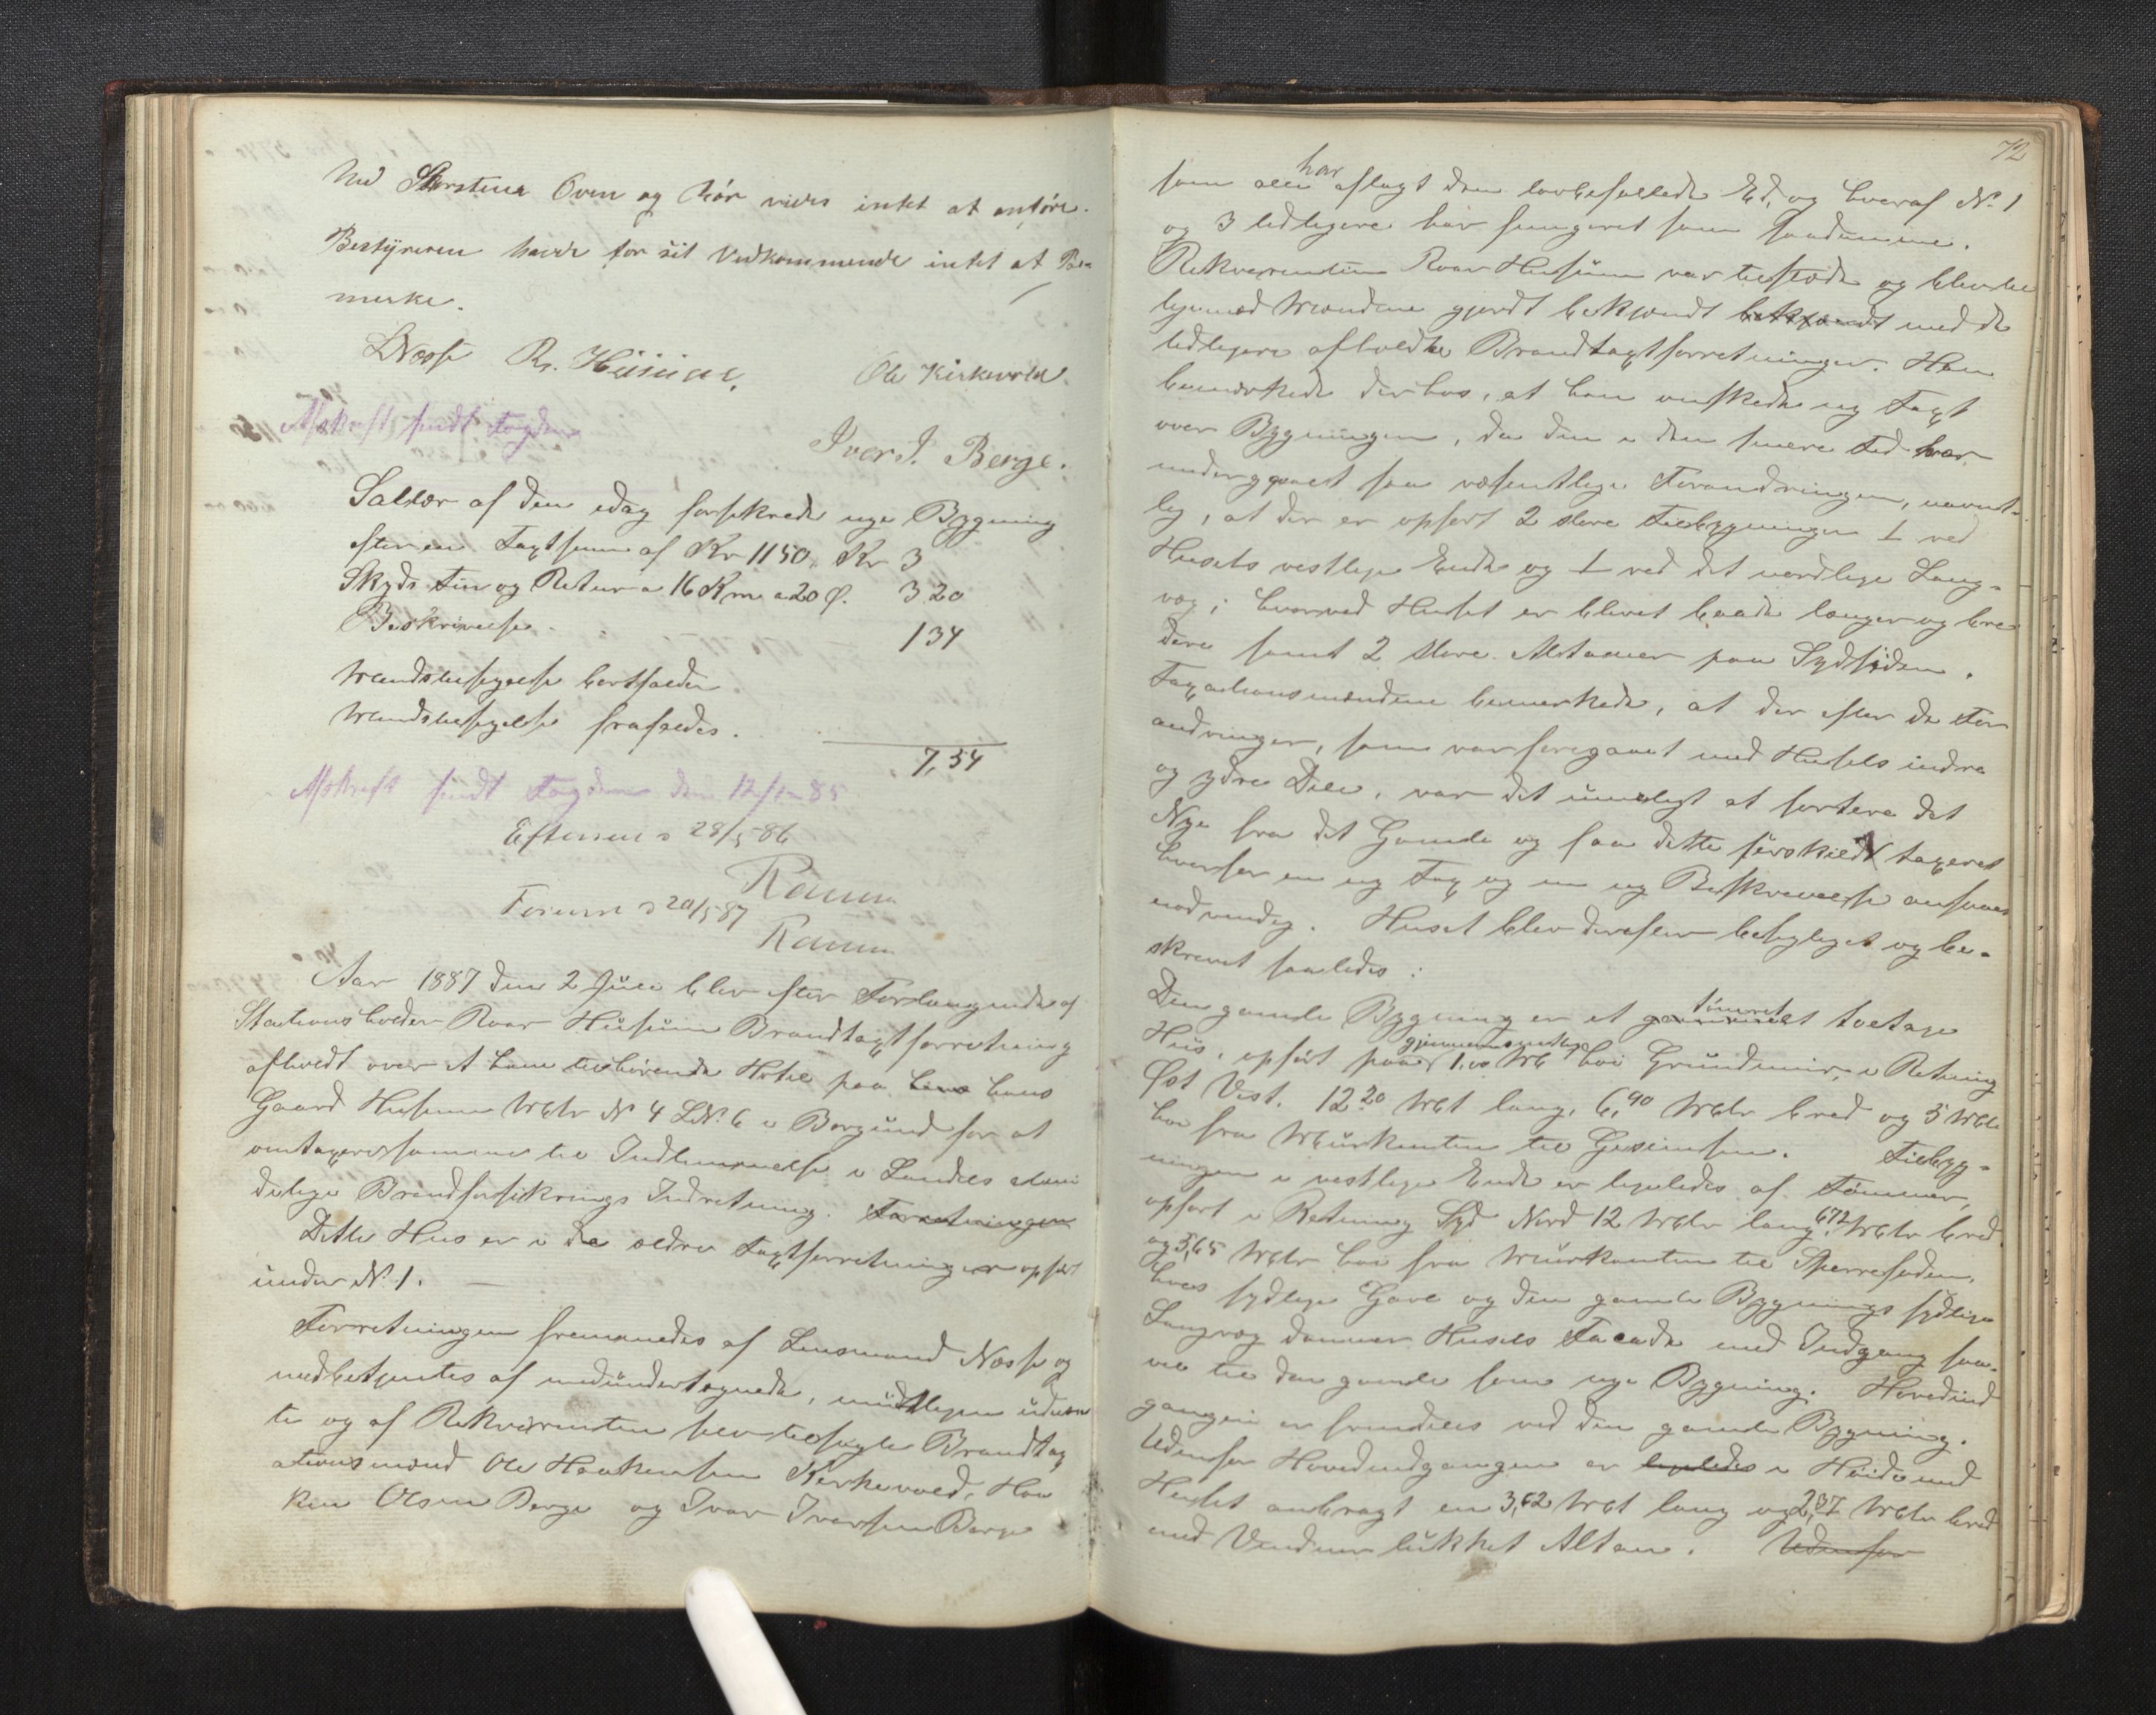 Ved Skorstene Ovne og Rör vides intet at anföre.
Bestÿreren havde for sit Vedkommende intet at Be-
mærke.
LNæsse R. Hüsüm. Ole Kirkevold.
Afskrift sendt Fogden
Iver I. Berge.
Sallær af den idag forsikrede nye Bygning
efter en Taxtsum af Kr 1150, Kr 3
Skyds Frem og Retur a 16 Km a 20 Ø. 3 20
Beskrivelse 1 34
Mandsbesigelse bortfalder.
Mandsbesigelse frafaldes.
7,54
Afskrift sendt Fogden den 12/1-85
Eftersees 28/5-86
Ramm
Foreviist 20/5 87
Ramm
Aar 1887 den 2 Juli blev efter Forlangende af
Stationsholder Roar Hüsüm Brandtaxtforretning
afholdt over et ham tilhörende Hotel paa hans
Gaard Husum Matr N 4 LN. 6 i Borgünd for at
omtaxeres samme til Indlemmelse i Landets almin
delige Brandforsikrings Indretning. Forretningen
Dette Hus er i de ældre Taxtforretninger opfört
ünder N. 1.
Forretningen fremmedes af Lensmand Næsse og
medbetjentes af medündertegnede, mündtligen üdnævn
te og af Rekvirenten selv tilsagte Brandtax
ationsmænd Ole Haakensen Kirkevold, Haa
ken Olsen Berge og Ivar Iversen Berge
72
som alle har aflagt den lovbefallede Ed, og hvoraf N. 1
og 3 tidligere har fungeret som saadanne.
Rekvirenten Roar Husüm var tilstæde og blev til
ligemed Mændene gjordt bekjendt bekjendt med de
tidligere afholdte Brandtaxtforretninger. Han
bemærkede derhos, at han önskede ny Taxt
over Bygningen, da den i den senere Tid har
undergaaet saa væsentlige Forandringer, navnt-
lig, at der er opfört 2 störe Tilbygninger 1 ved
Husets vestlige Ende og 1 ved det nordlige Lang-
væg, hvorved Huset er blevet baade længer og bre
dere samt 2 störe Altaner paa Sydsiden.
Taxationsmændene bemærkede, at der efter de For
andringer, som var foregaaet med Husets indre
og ydre Dele, var det ümuligt at sortere det
Nye fra det Gamle og faa dette særskildt taxeret
hvorfor en ny Tax og en ny Beskrivelse ansaaes
nödvendig. Huset blev derefter besigtiget og be-
skrevet saaledes:
Den gamle Bygning er et gammelt tömret toetages
Hüs, opfört paa gjennemsnitlig 1.00 Mt höi Gründmür, i Retning
Öst Vest. 12.20 Met lang, 6,90 Metr bred og 5 Met
höi fra Mürkanten til Gesimsen. Tilbyg-
ningen i vestlige Ende er ligeledes af Tömmer,
opfört i Retning Syd Nord 12 Metr lang, 6.72 Metr bred
og 5,65 Metr höi fra Mürkanten til Sperrefoden,
hvis sydlige Gavl og den gamle Bygnings sydlige
Langvæg danner Husets Facade med Indgang saa-
vel til den gamle som nye Bygning. Hovedind
gangen er fremdeles ved den gamle Bygning.
Udenfor Hovedindgangen er ligeledes i Höide med
Huset anbragt en 3,62 Met lang og 2,37 Metr bred
med Vinduer lükket Altan. Udenfor